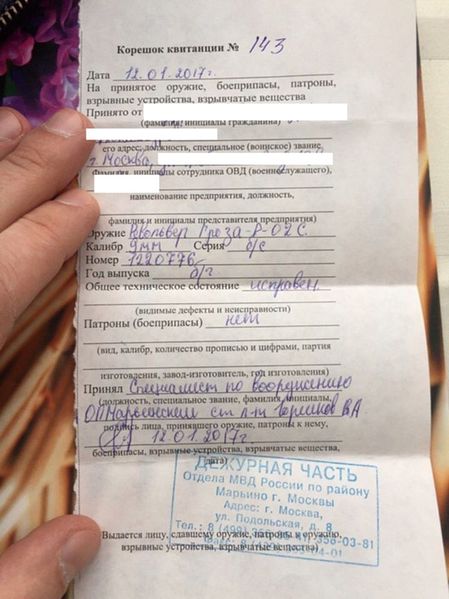 Корешок квитанции № 143
Дата 12.01.2017г.
На принятое оружие, боеприпасы, патроны,
взрывные устройства, взрывчатые вещества
Принято от
(фамилия, инициалы гражданина)
его адрес, должность, специальное (воинское) звание,
г. Москва,
Фамилия, инициалы сотрудника ОВД (военнослужащего),
наименование предприятия, должность,
фамилия и инициалы представителя предприятия)
Оружие Револьвер Гроза-Р-02С
Калибр 9мм Серия б/с
Номер 1220776
Год выпуска б/г
Общее техническое состояние исправен.
(видимые дефекты и неисправности)
Патроны (боеприпасы) нет
(вид, калибр, количество прописью и цифрами, партия
изготовления, завод-изготовитель, год изготовления)
Принял Специалист по вооружению
(должность, специальное звание, фамилия, инициалы,
ст. л-т ВА
подпись лица, принявшего оружие, патроны к нему,
12.01.2017г.
боеприпасы, взрывные устройства, взрывчатые вещества,
дата)
ДЕЖУРНАЯ ЧАСТЬ
Отдела МВД России по району
Марьино г. Москвы
Адрес: г. Москва,
ул. Подольская, д. 8
Тел.: 8 (499) 358-03-81
Факс: 8 -04-01
Выдается лицу, сдавшему оружие, патроны к оружию,
взрывные устройства, взрывчатые вещества)